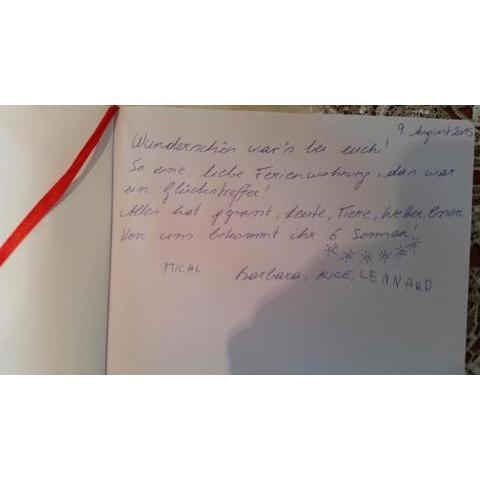 9. August 2015
Wunderschön war's bei euch!
So eine liebe Ferienwohnung, das war
ein Glückstreffer!
Alles hat gepasst, Leute, Tiere, Wetter, Essen
Von uns bekommt ihr 6 Sonnen!
MICHL Barbara, ALICE, LENNARD